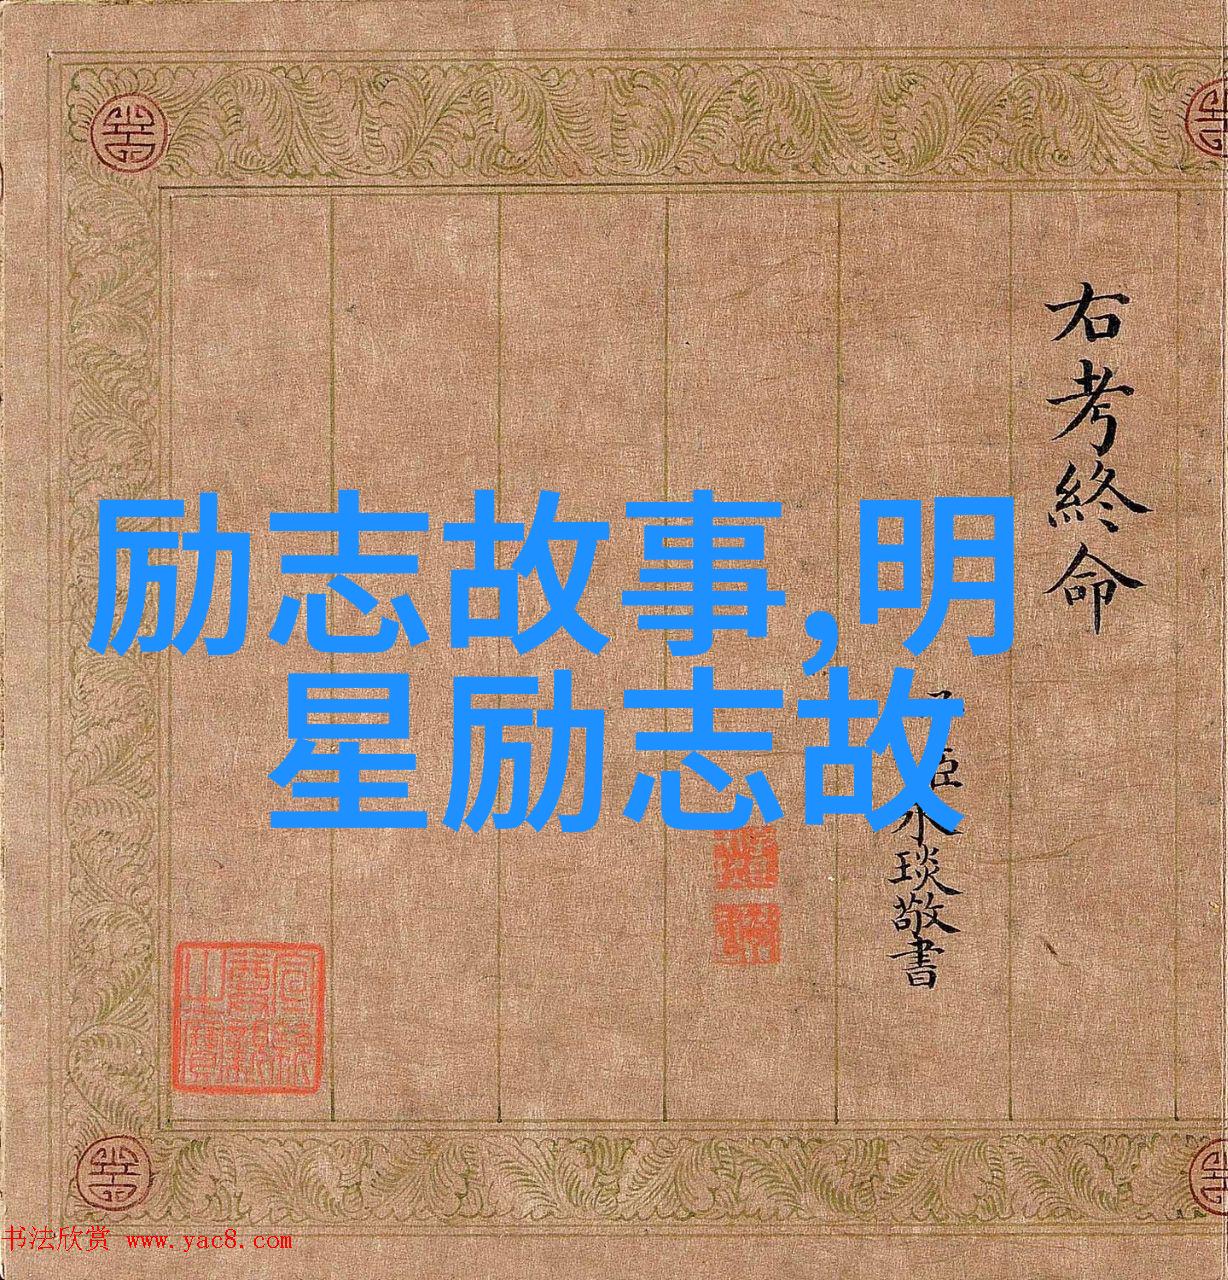 励志故事,明
星励志故
右考終命
臣永琰敬書
书法欣赏 www.yac8.com